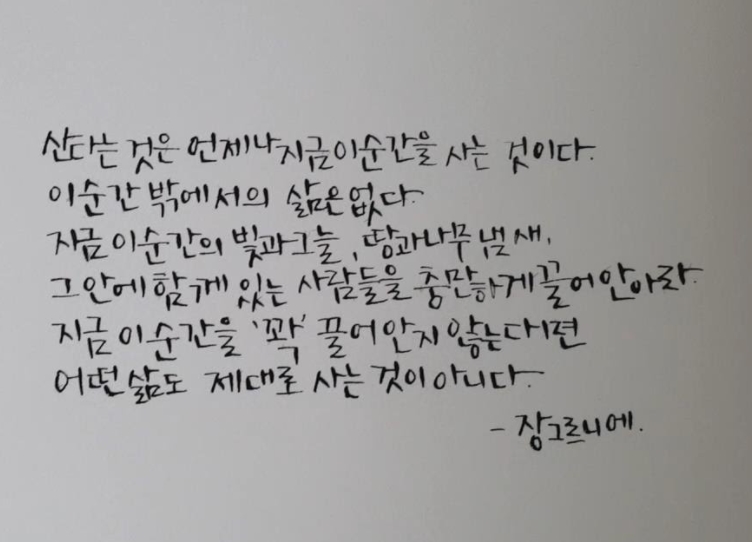 산다는 것은 언제나 지금 이 순간을 사는 것이다.
이 순간 밖에서의 삶은 없다.
지금 이 순간의 빛과 그늘, 땅과 나무 냄새,
그 안에 함께 있는 사람들을 충만하게 끌어안아라.
지금 이 순간을 '꽉' 끌어안지 않는다면
어떤 삶도 제대로 사는 것이 아니다.
- 장그르니에.